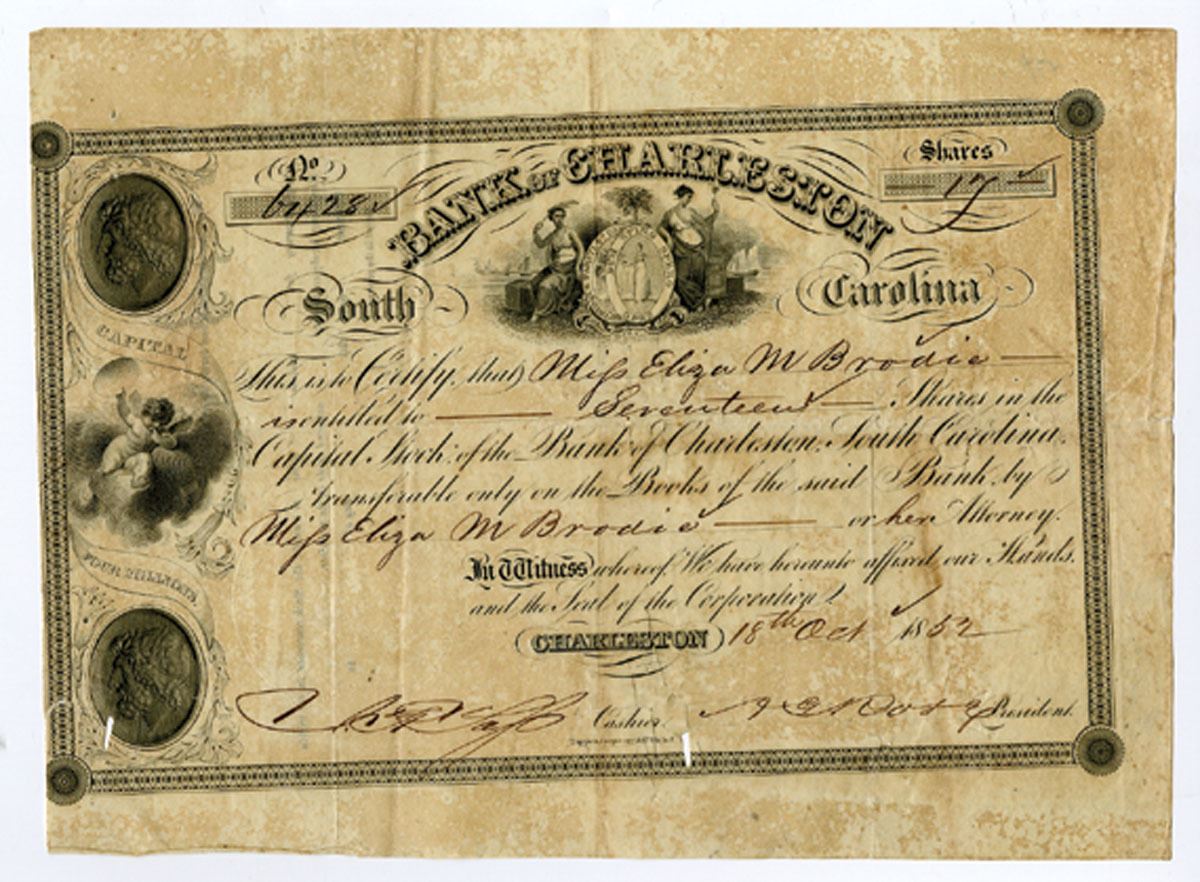 No.
6428
BANK OF CHARLESTON
Shares
17
South Carolina
CAPITAL
FOUR MILLIONS
This is to Certify, that Miſs Eliza M Brodie
is entitled to Seventeen Shares in the
Capital Stock of the Bank of Charleston, South Carolina,
transferable only on the Books of the said Bank by
Miſs Eliza M Brodie or her Attorney.
In Witness whereof We have hereunto affixed our Hands,
and the Seal of the Corporation
CHARLESTON 18th Oct 1852
Cashier. President.